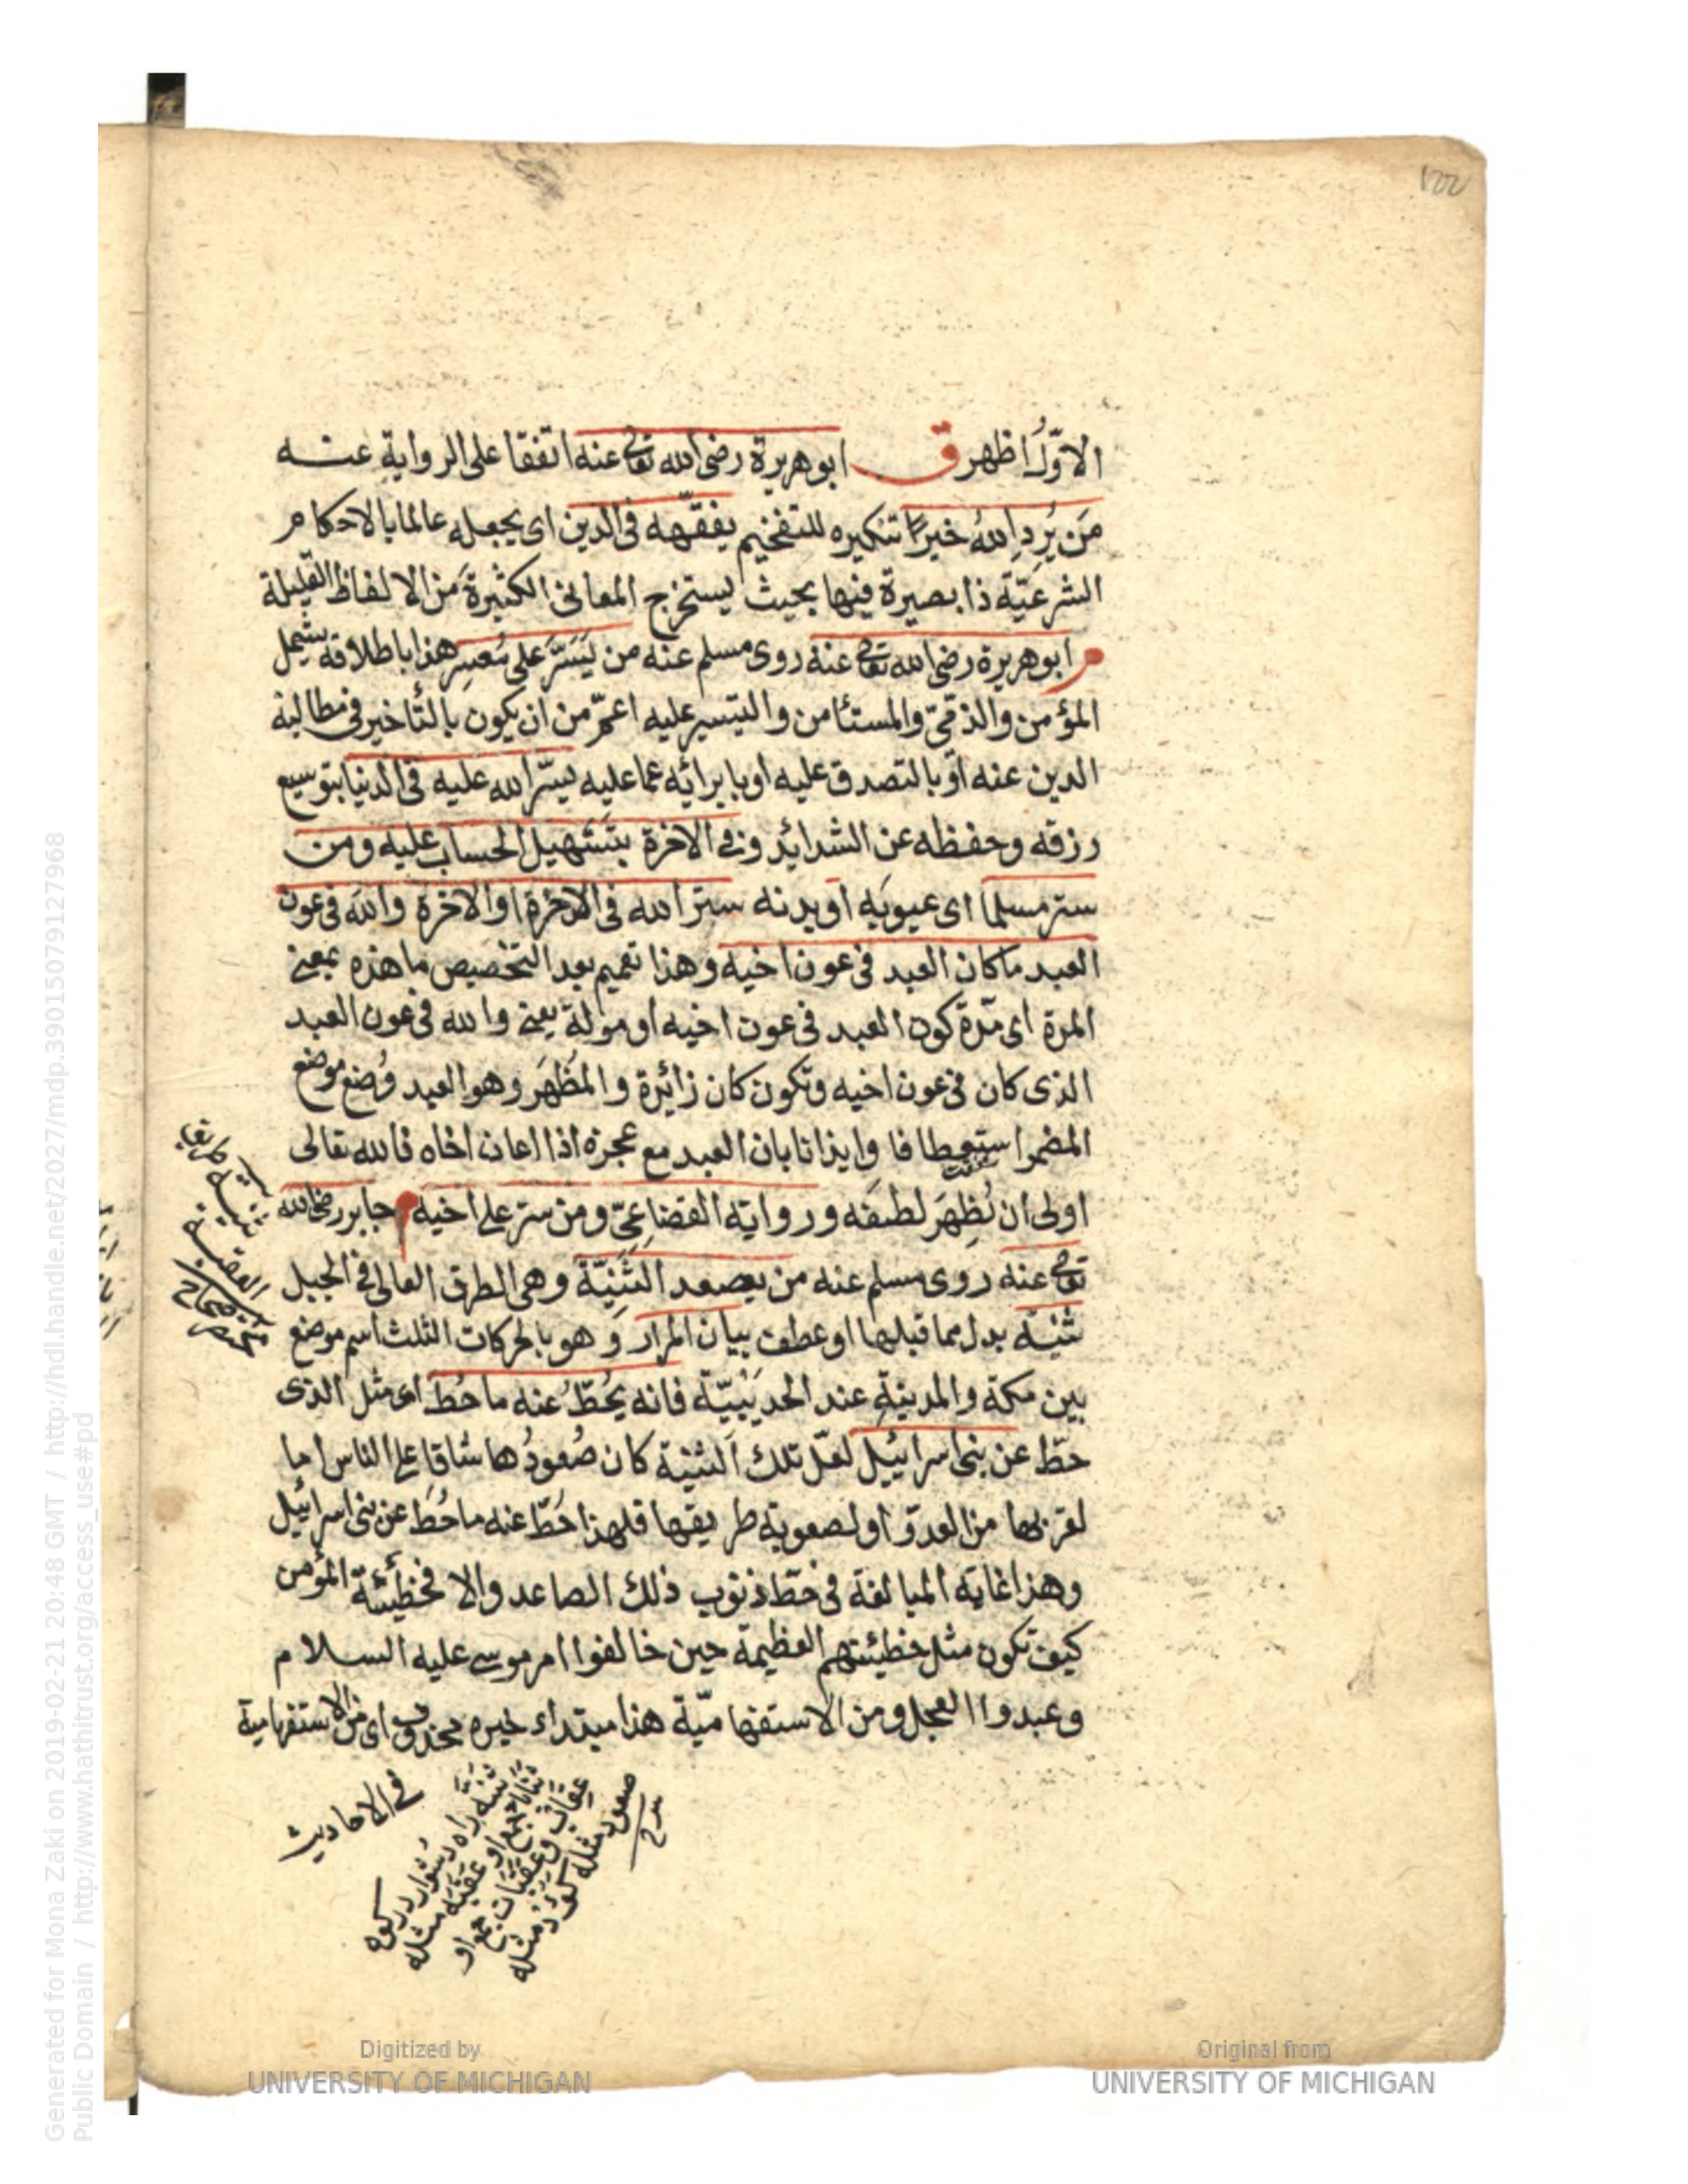 الاوّلُ اظهر ق ابو هريرة رضى الله تعالى عنه اتفقا على الرواية عنه
مَن يُرِدِ اللهُ خيرًا تنكيره للتفخيم يفقّهه فى الدين اى يجعله عالما بالاحكام
الشرعيّة ذا بصيرة فيها بحيث يستخرج المعانى الكثيرة من الالفاظ القليلة
م ابو هريرة رضى الله تعالى عنه روى مسلم عنه من يَسَّرَ على مُعسِر هذا باطلاقه يشمل
المؤمن والذمّىّ والمستأمن والتيسير عليه اعمّ من ان يكون بالتأخير فى مطالبة
الدين عنه او بالتصدق عليه او بابرائه عما عليه يسّر الله عليه فى الدنيا بتوسيع
رزقه وحفظه عن الشدائد وفى الاخرة بتسهيل الحساب عليه ومن
ستر مسلما اى عيوبَه او بدنه ستر الله فى الاخرة او الاخرة والله فى عون
العبد ما كان العبد فى عون اخيه وهذا تعميم بعد التخصيص ما هذه بمعنى
المرة اى مدّة كون العبد فى عون اخيه او موصلة يعنى والله فى عون العبد
الذى كان فى عون اخيه وتكون كان زائدة والمُظهَر وهو العبد وُضع موضع
المضمر استعطافا وايذانا بان العبد مع عجزه اذا اعان اخاه فالله تعالى
اولى ان يُظهِرَ لطفَه ورواية القضاعىّ ومن ستر على اخيه م جابر رضى الله
تعالى عنه روى مسلم عنه من يصعد الثَنِيّةَ وهى الطرق العالى فى الجبل
ثنية بدل مما قبلها او عطف بيان المرار وهو بالحركات الثلث اسم موضع
بين مكة والمدينةِ عند الحديبيّة فانه يُحَطّ عنه ما حُطّ اى مثل الذى
حطّ عن بنى اسرائيل لعلّ تلك الثنية كان صُعودُها شاقا على الناس اما
لقربها من العدوّ او لصعوبة طريقها فلهذا حَطّ عنه ما حُطّ عن بنى اسرائيل
وهذا غاية المبالغة فى حَطّ ذنوب ذلك الصاعد والا فخطيئة المؤمن
كيف تكون مثل خطيئتهم العظيمة حين خالفوا امر موسى عليه السلام
وعبدوا العجل ومن الاستفهاميّة هذا مبتداء خبره محذوف اى من الاستفهامية
ثنية طريق
العقبة
مختصر صحاح
فى الاحاديث
ثنيه راه دشوار در كوه
ثنايا جمع او عقبه مثله
عقاب وعقبات جمع او
صعود مثله كؤد مثله